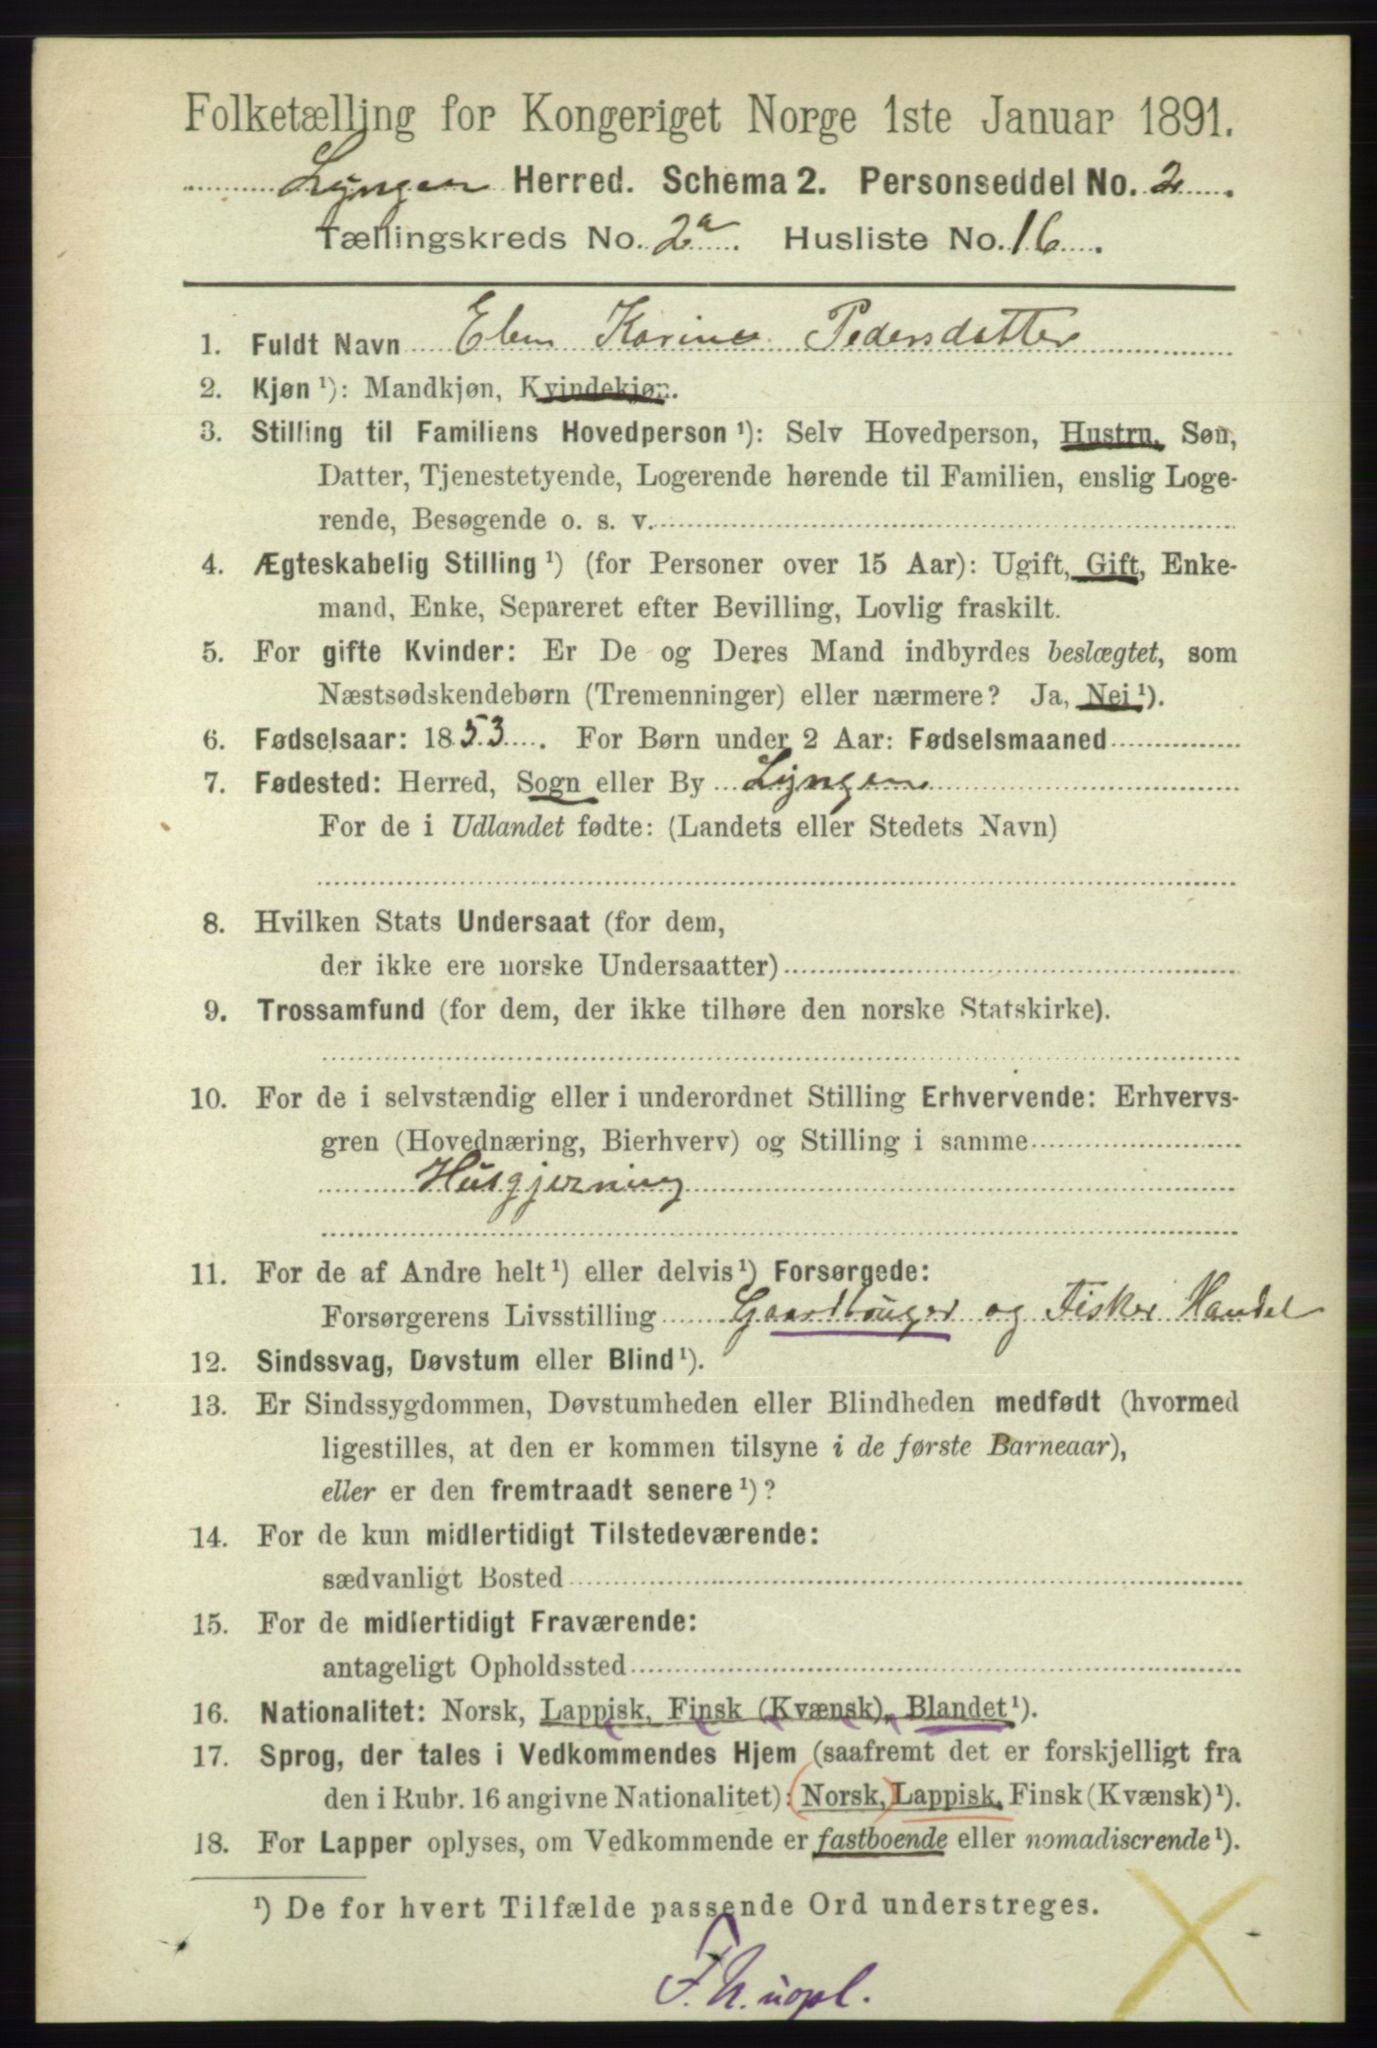 Folketælling for Kongeriget Norge 1ste Januar 1891.
Lyngen Herred. Schema 2. Personseddel No. 2.
Tællingskreds No. 2a. Husliste No. 16.
1. Fuldt Navn Elen Karine Pedersdatter
2. Kjøn ¹): Mandkjøn, Kvindekjøn.
3. Stilling til Familiens Hovedperson ¹): Selv Hovedperson, Hustru, Søn,
Datter, Tjenestetyende, Logerende hørende til Familien, enslig Loge-
rende, Besøgende o. s. v.
4. Ægteskabelig Stilling ¹) (for Personer over 15 Aar): Ugift, Gift, Enke-
mand, Enke, Separeret efter Bevilling, Lovlig fraskilt.
5. For gifte Kvinder: Er De og Deres Mand indbyrdes beslægtet, som
Næstsødskendebørn (Tremenninger) eller nærmere? Ja, Nei ¹).
6. Fødselsaar: 1853. For Børn under 2 Aar: Fødselsmaaned
7. Fødested: Herred, Sogn eller By Lyngen
For de i Udlandet fødte: (Landets eller Stedets Navn)
8. Hvilken Stats Undersaat (for dem,
der ikke ere norske Undersaatter)
9. Trossamfund (for dem, der ikke tilhøre den norske Statskirke).
10. For de i selvstændig eller i underordnet Stilling Erhvervende: Erhvervs-
gren (Hovednæring, Bierhverv) og Stilling i samme
Husgjerning
11. For de af Andre helt ¹) eller delvis ¹) Forsørgede:
Forsørgerens Livsstilling Gaardbruger og Fisker Handel
12. Sindssvag, Døvstum eller Blind ¹).
13. Er Sindssygdommen, Døvstumheden eller Blindheden medfødt (hvormed
ligestilles, at den er kommen tilsyne i de første Barneaar),
eller er den fremtraadt senere ¹)?
14. For de kun midlertidigt Tilstedeværende:
sædvanligt Bosted
15. For de midlertidigt Fraværende:
antageligt Opholdssted
16. Nationalitet: Norsk, Lappisk, Finsk (Kvænsk), Blandet ¹).
17. Sprog, der tales i Vedkommendes Hjem (saafremt det er forskjelligt fra
den i Rubr. 16 angivne Nationalitet): (Norsk,) Lappisk, Finsk (Kvænsk) ¹).
18. For Lapper oplyses, om Vedkommende er fastboende eller nomadiserende ¹).
¹) De for hvert Tilfælde passende Ord understreges.